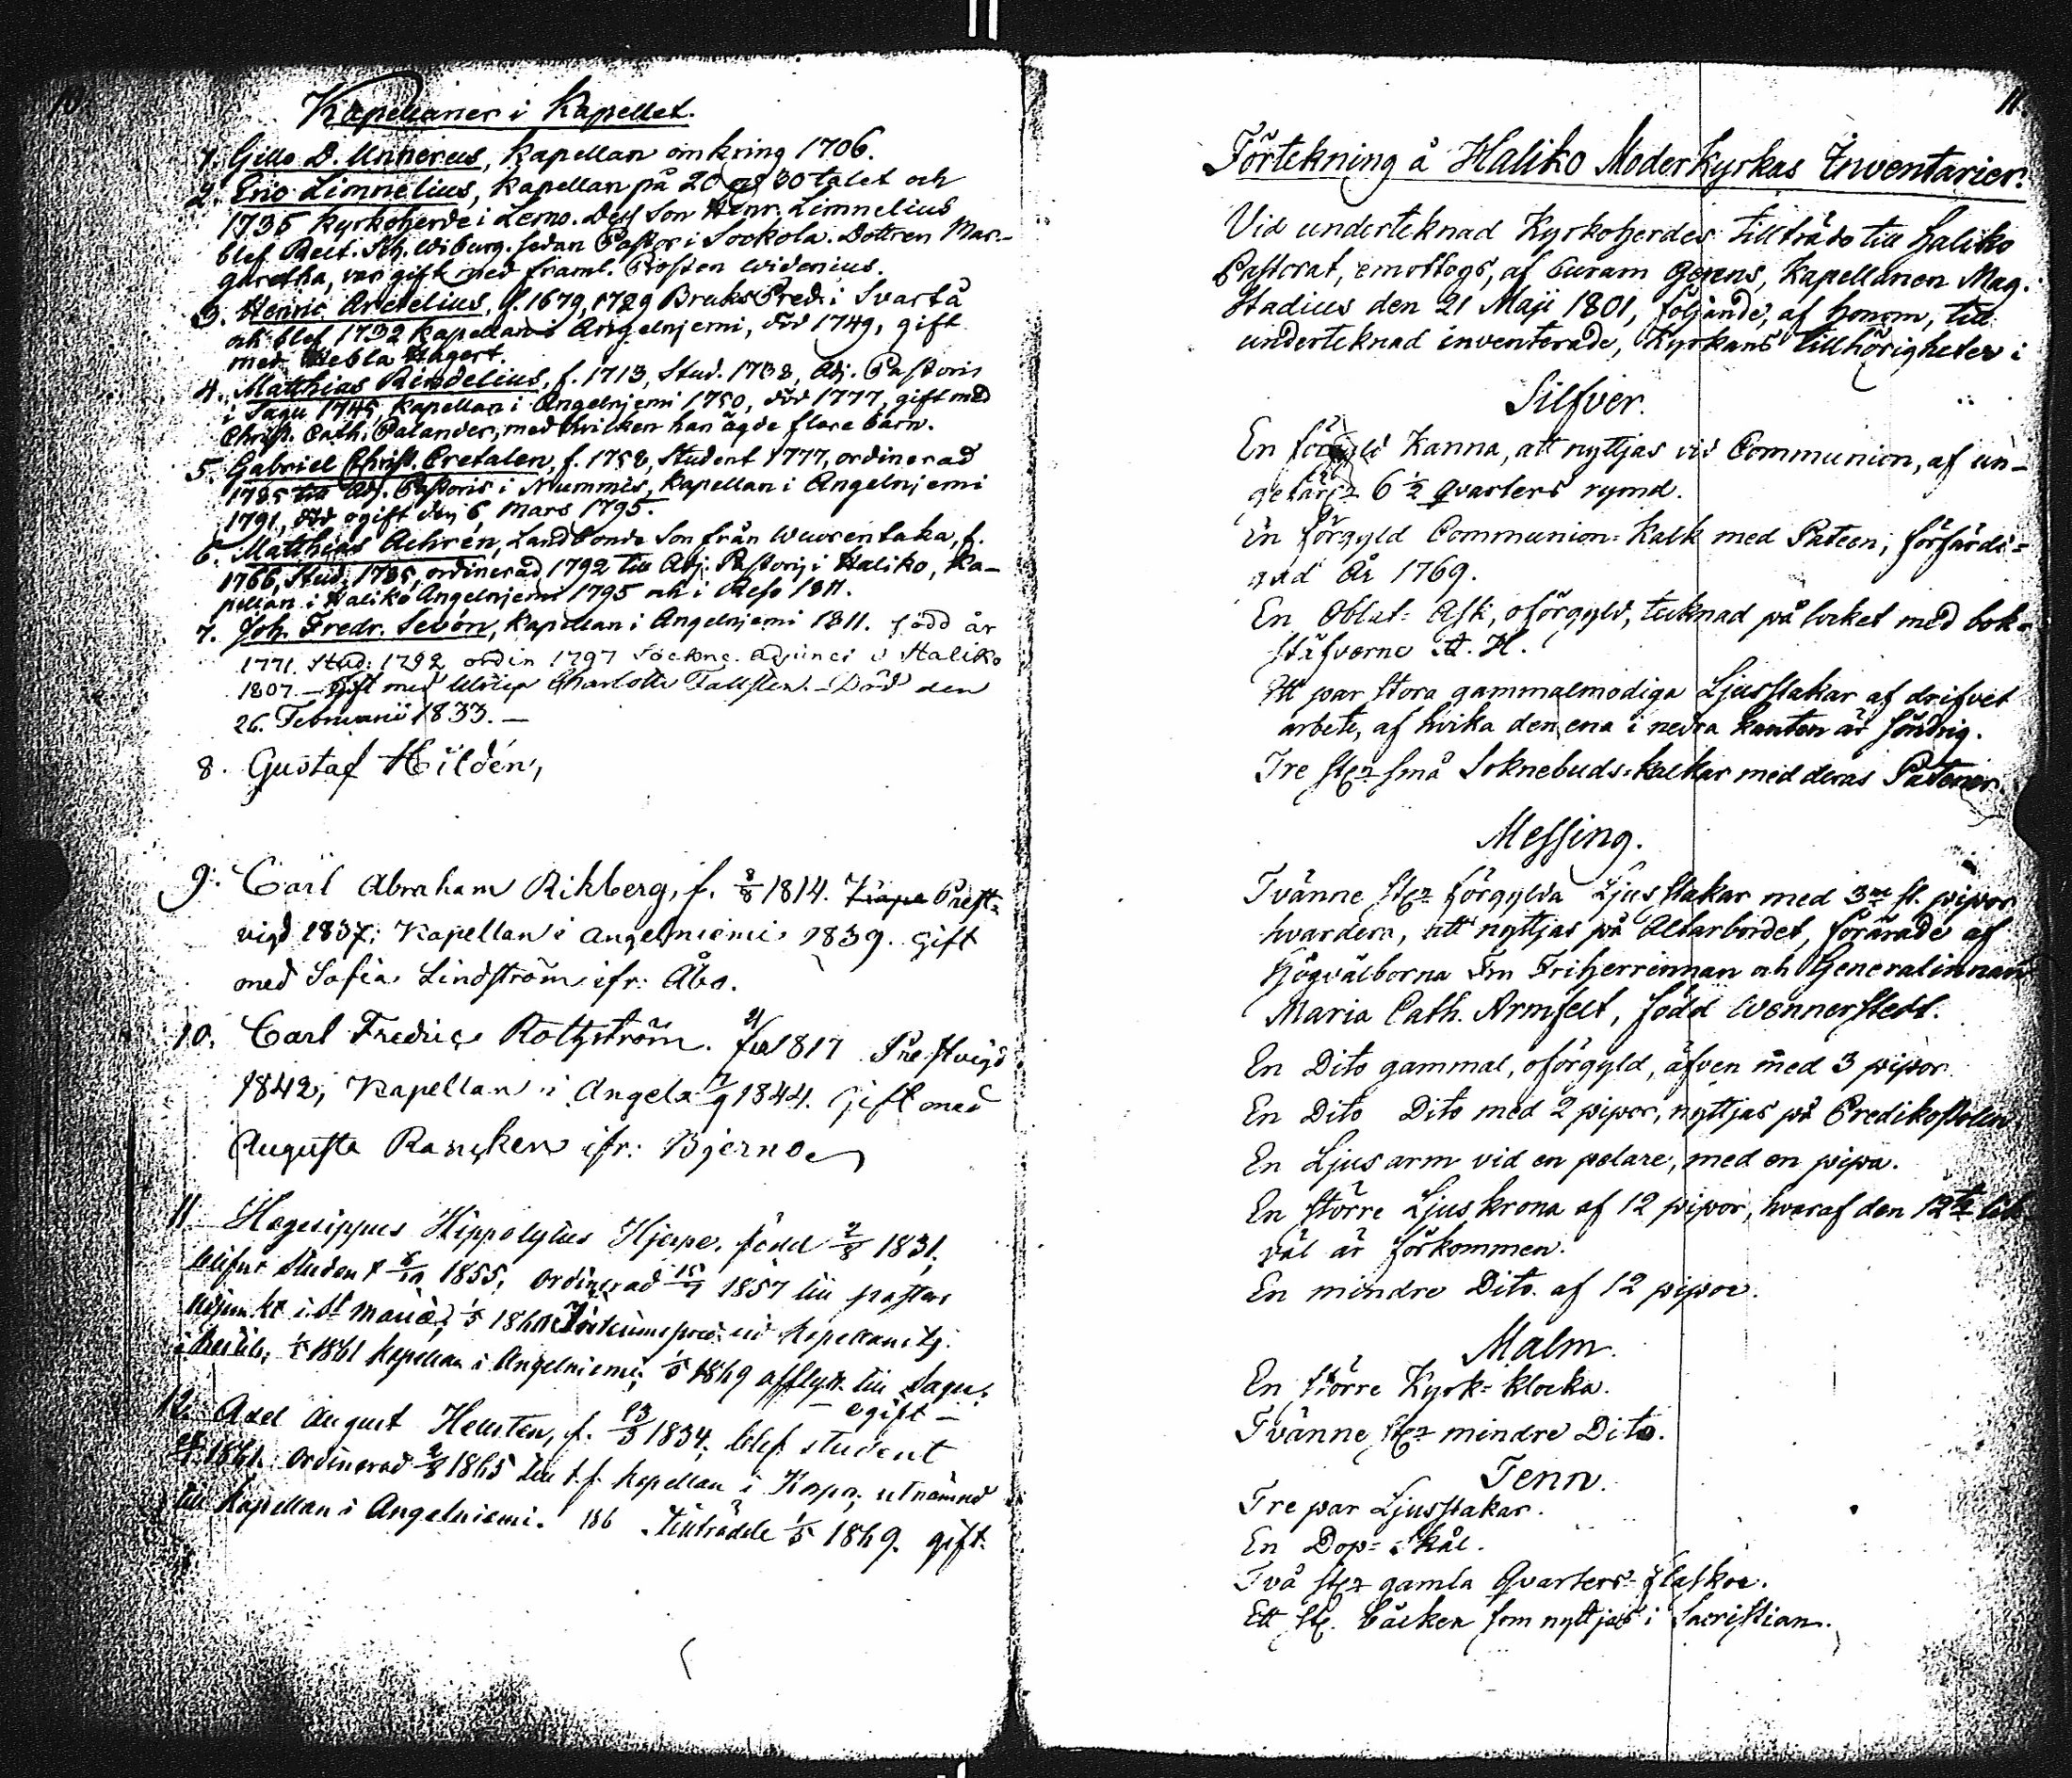 10.
Kapellaner i Kapellet.
1. Gillo D. Unnerus, Kapellan omkring 1706.
2. Eric Limnelius, Kapellan på 20 och 30 talet och
1735 Kyrkoherde i Lemo. Dess Son Henr. Limnelius
blef Rect. Sch. Wiburg. sedan Pastor i Sockola. Dottren Mar-
garetha, var gift med framl. Prosten Widenius.
3. Henric Aretelius, f. 1679, 1729 Bruks Pred. i Svartå
och blef 1732 Kapellan i Angelnjemi, död 1749, gift
med Hebla Hagert.
4. Matthias Rindelius, f. 1713, Stud. 1738, Adj. Pastoris
i Sagu 1745, Kapellan i Angelnjemi 1750, död 1777, gift med
Christ. Cath. Palander, med hvilken han ägde flera barn.
5. Gabriel Christ. Cretalen, f. 1758, Student 1777, ordinerad
1785 till Adj. Pastoris i Nummis, Kapellan i Angelnjemi
1791, död ogift den 6 Mars 1795.
6. Matthias Achrén, Landbonde Son från Wuorentaka, f.
1766, Stud. 1785, ordinerad 1792 till Adj. Pastoris i Haliko, Ka-
pellan i Haliko Angelnjemi 1795 och i Reso 1811.
7. Joh. Fredr. Sevón, Kapellan i Angelnjemi 1811. född år
1771. Stud: 1792 ordin 1797 Sockne. Adjunct i Haliko
1807. - Gift med Ulrica Charlotta Fallsten. - Död den
26. Februarii 1833. -
8. Gustaf Hildén,
9. Carl Abraham Rihberg, f. 2/8 1814. Prest-
vigd 1837; Kapellan i Angelniemi 1839. Gift
med Sofia Lindström ifr: Åbo.
10. Carl Fredric Rottström. 1817 Prestvigd
1842, Kapellan i Angela 1844. Gift med
Augusta Rancken ifr: Bjerno
11 Hegesippus Hippolytus Hjerpe. född 2/8 1831;
blifvit student 1855; ordinerad 1857 till pastors
adjunkt i St Marie; 1/5 1860 vid kapellanstj.
1/5 1861 kapellan i Angelniemi; 1/5 1869 afflytt. till Sagu.
- ogift -
12. Axel August Hellsten, f. 23/3 1834; blef student
1861. Ordinerad 1865 till t.f. kapellan i Korpo; utnämnd
till kapellan i Angelniemi. 186 Tillträdde 1/5 1869. gift.
11.
Förtekning å Haliko Moderkyrkas Inventarier.
Vid underteknad Kyrkoherdes tillträde till Haliko
Pastorat, emottogs, af Curam Gerens, Kapellanen Mag.
Stadius den 21 Maji 1801, följande, af honom, till
underteknad inventerade, Kyrkans tillhörigheter i
Silfver.
En förgyld Kanna, att nyttjas vid Communion, af un-
gefär 6 1/2 qvarters rymd.
En förgyld Communion-Kalk med Pateen, förfärdi-
gad År 1769.
En Oblat-Ask, oförgyld, teknad på locket med bok-
stäfverne A. H.
Ett par stora gammalmodiga Ljusstakar af drifvet
arbete, af hvika den ena i nedra kanten är söndrig.
Tre st. små Soknebuds-kalkar med deras Patener.
Messing.
Tvänne st. förgylda Ljusstakar med 3ne st. pipor
hvardera, att nyttjas på Altarbordet, förärade af
Högvälborna Fru Friherrinnan och Generalinnan
Maria Cath. Armfelt, född Wennerstedt.
En Dito gammal, oförgyld, äfven med 3 pipor.
En Dito Dito med 2 pipor, nyttjas på Predikostolen.
En Ljusarm vid en pelare, med en pipa.
En större Ljuskrona af 12 pipor, hvaraf den 12te lik
väl är förkommen.
En mindre Dito. af 12 pipor.
Malm.
En större Kyrk-klocka.
Tvänne st. mindre Dito.
Tenn.
Tre par Ljusstakar.
En Dop-Skål.
Två st. gamla Qvarters-flaskor.
Ett st. Bäcken som nyttjas i Sacristian.